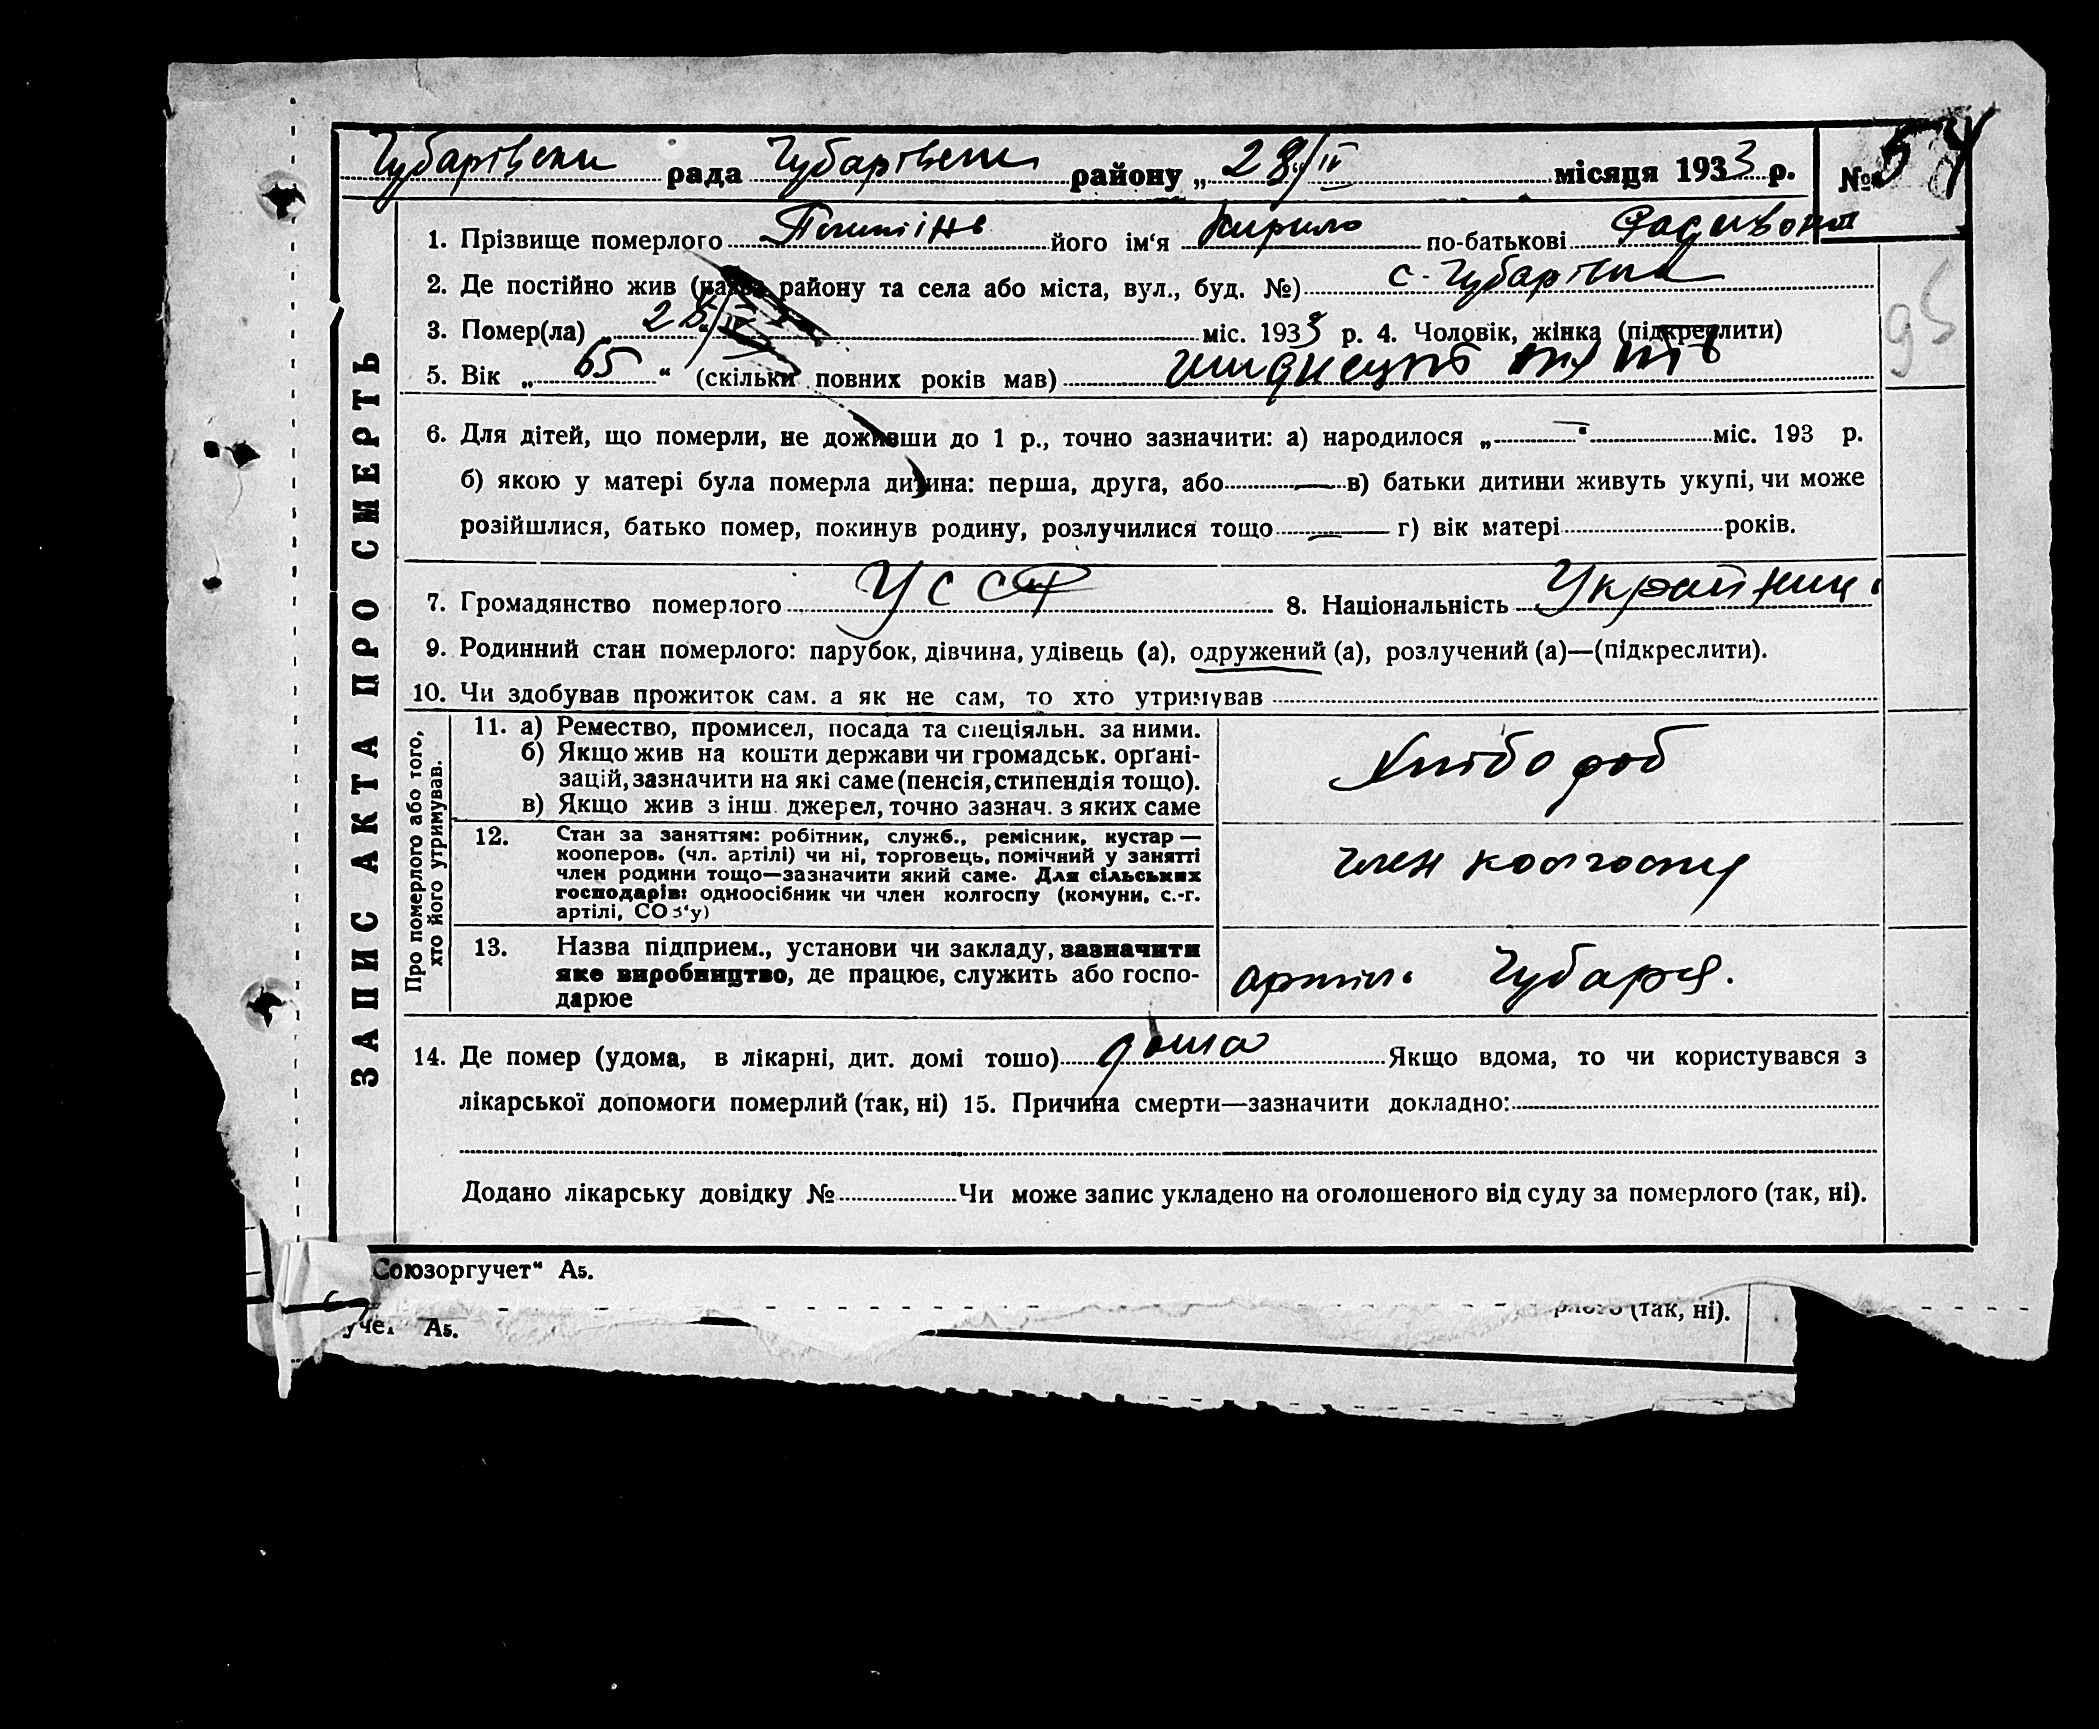 Чубарівська рада Чубарівськ району „28/IV місяця 1933 р. №
1. Прізвище померлого його ім‘я Кирило по-батькові
2. Де постійно жив (назва району та села або міста, вул., буд. №) с. Чубарівка
3. Помер(ла) „ міс. 1933 р. 4. Чоловік, жінка (підкреслити)
5. Вік „65“ (скільки повних років мав) шидисять пять
6. Для дітей, що померли, не доживши до 1 р., точно зазначити: а) народилося „ “ міс. 193 р.
б) якою у матері була померла дитина: перша, друга, або в) батьки дитини живуть укупі, чи може
розійшлися, батько помер, покинув родину, розлучилися тощо г) вік матері років.
7. Громадянство померлого УССР 8. Національність Українець
9. Родинний стан померлого: парубок, дівчина, удівець (а), одружений (а), розлучений (а)—(підкреслити).
10. Чи здобував прожиток сам. а як не сам, то хто утримував
ЗАПИС АКТА ПРО СМЕРТЬ
Про померлого або того,
хто його утримував.
11. а) Ремество, промисел, посада та спеціяльн. за ними.
б) Якщо жив на кошти держави чи громадськ. орґані-
зацій, зазначити на які саме (пенсія, стипендія тощо).
в) Якщо жив з інш. джерел, точно зазнач. з яких саме
Хлібороб
12. Стан за заняттям: робітник, служб., ремісник, кустар —
кооперов. (чл. артілі) чи ні, торговець, помічний у занятті
член родини тощо—зазначити який саме. Для сільських
господарів: одноосібник чи член колгоспу (комуни, с.-г.
артілі, СОЗ‘у)
член колгоспу
13. Назва підприєм., установи чи закладу, зазначити
яке виробництво, де працює, служить або госпо-
дарює
артіль Чубаря.
14. Де помер (удома, в лікарні, дит. домі тошо) дома Якщо вдома, то чи користувався з
лікарської допомоги померлий (так, ні) 15. Причина смерти—зазначити докладно:
Додано лікарську довідку № Чи може запис укладено на оголошеного від суду за померлого (так, ні).
95
Союзоргучет“ А5.
(так, ні).
учет А5.